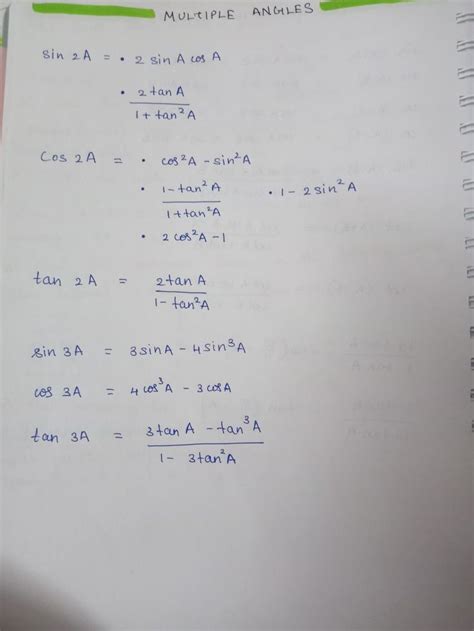 MULTIPLE ANGLES
sin 2A = • 2 sin A cos A
• 2 tan A / 1 + tan²A
Cos 2A = • cos²A - sin²A
• 1 - tan²A / 1 + tan²A • 1 - 2 sin²A
• 2 cos²A - 1
tan 2A = 2 tan A / 1 - tan²A
sin 3A = 3 sin A - 4 sin³A
cos 3A = 4 cos³A - 3 cos A
tan 3A = 3 tan A - tan³A / 1 - 3 tan²A